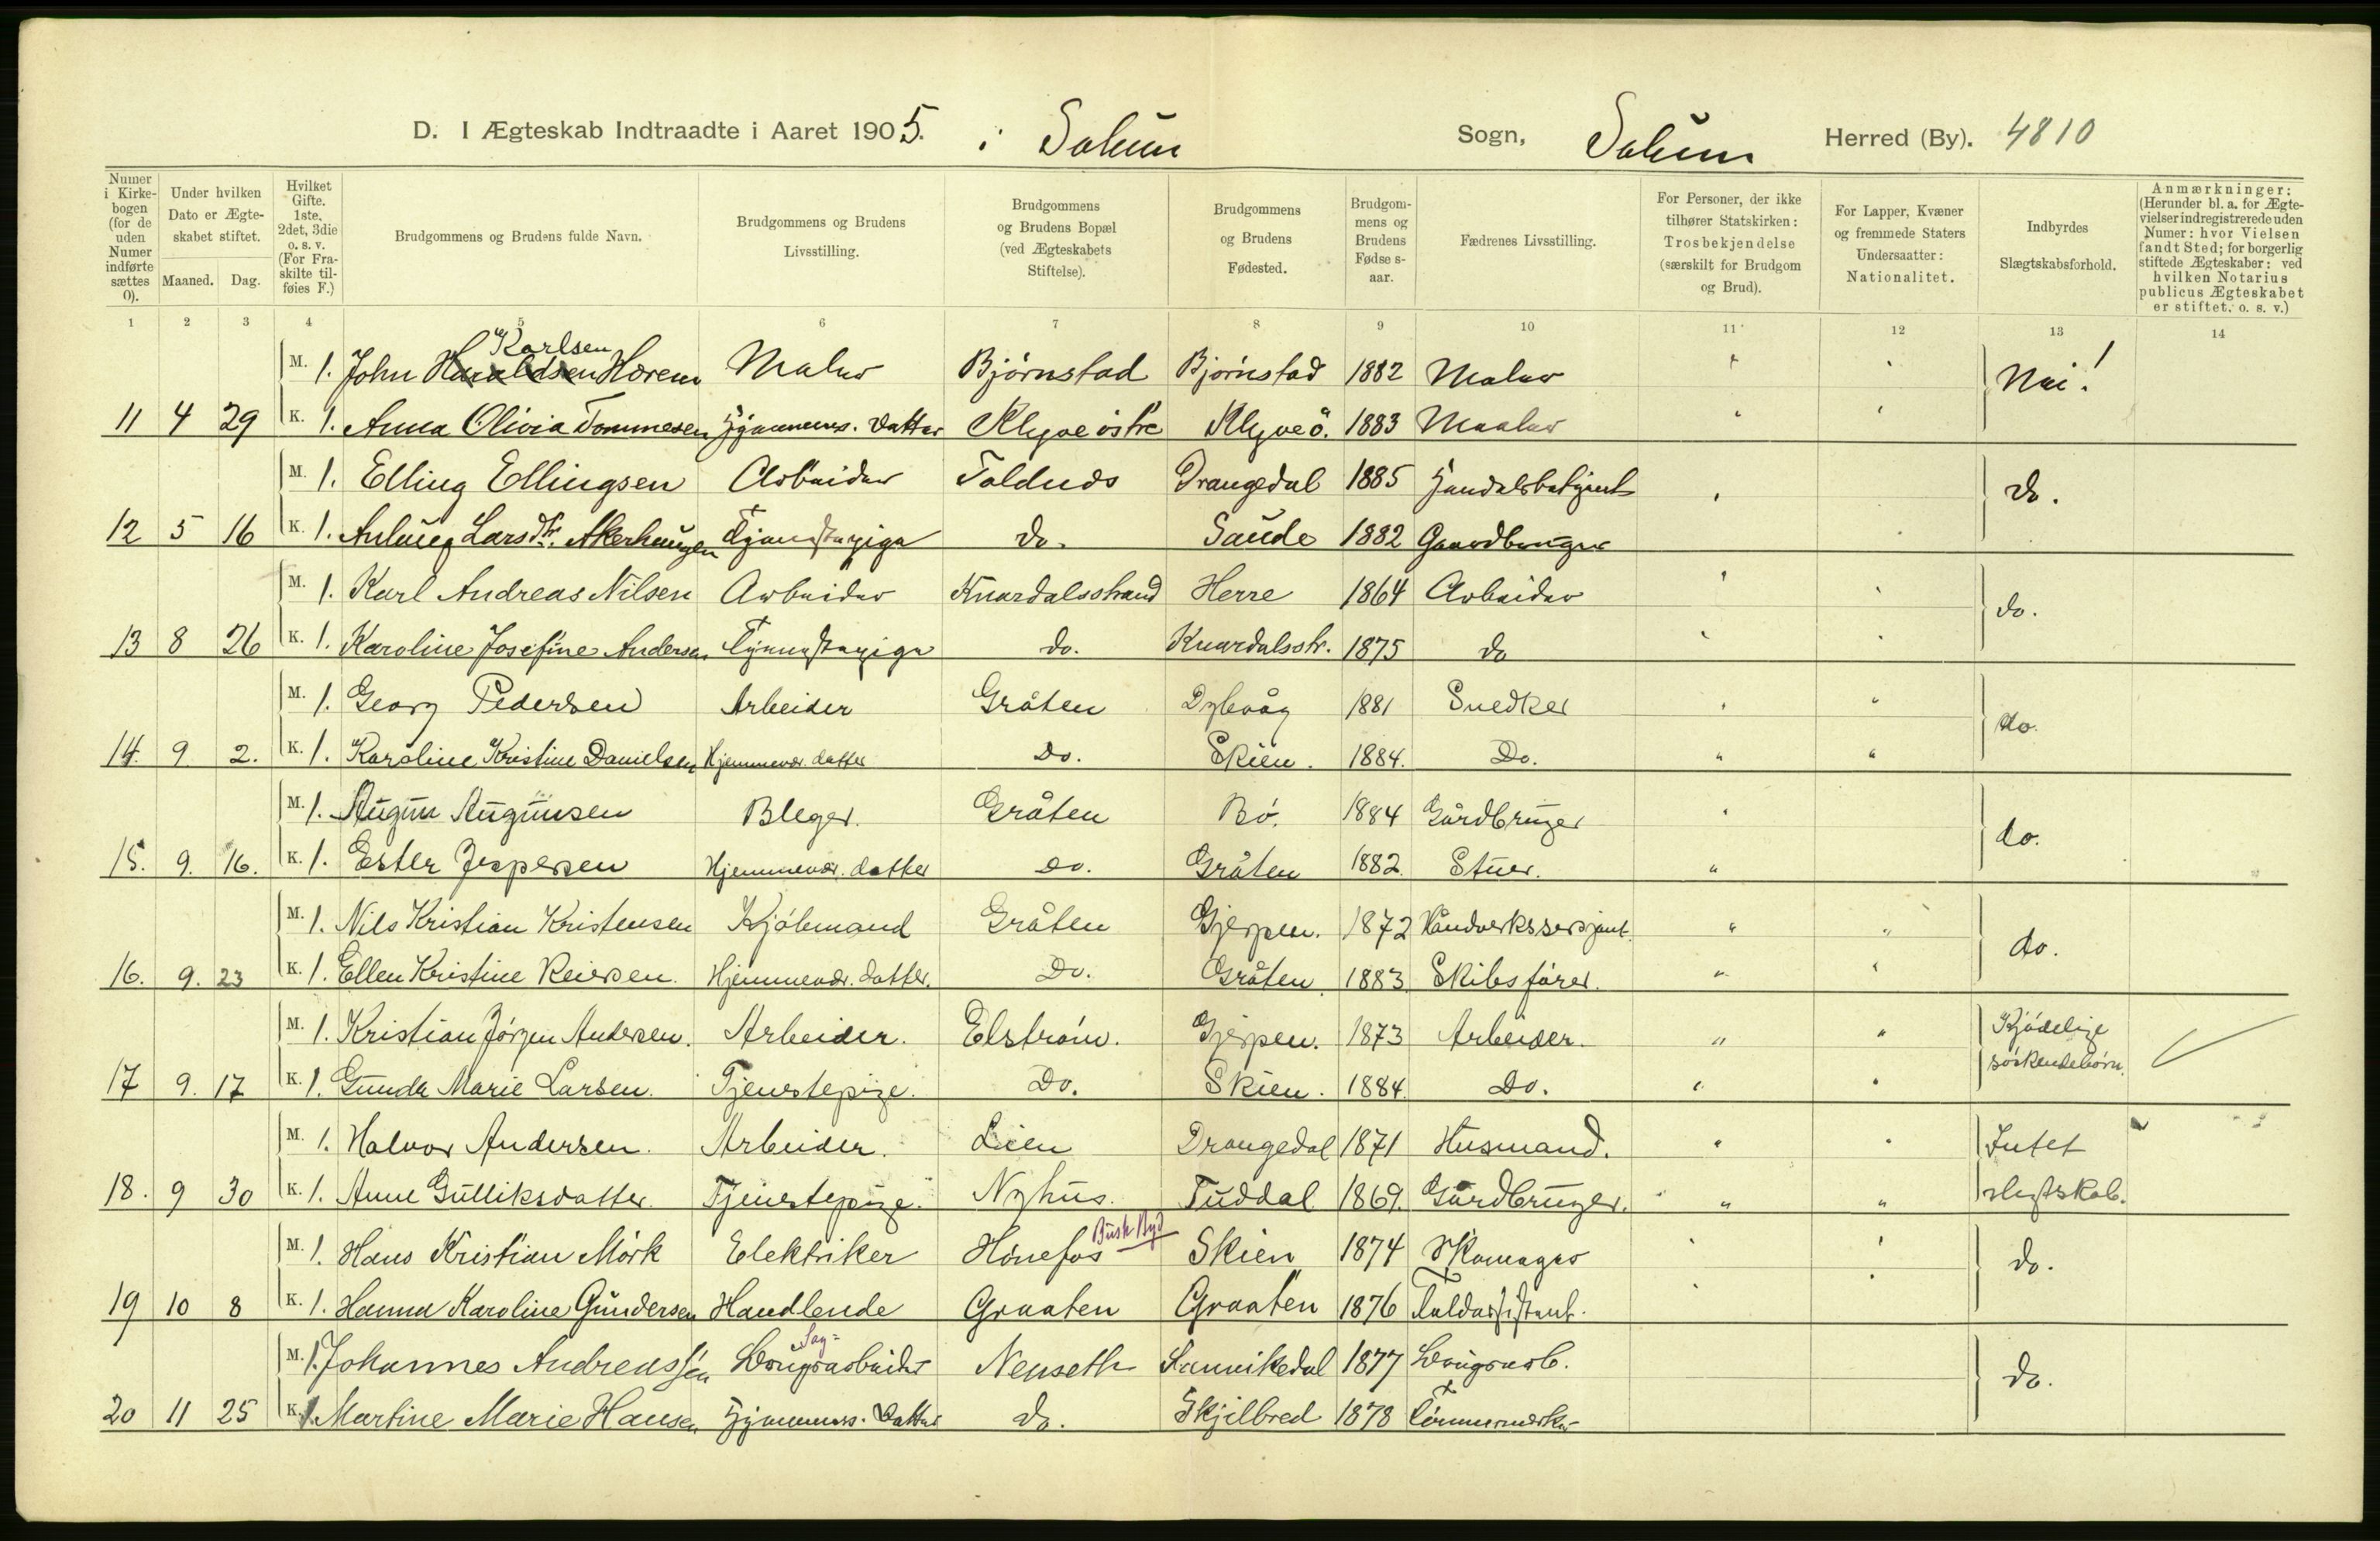 D. I Ægteskab Indtraadte i Aaret 1905. i Solum Sogn, Solum Herred (By). 4810
Numer i Kirkebogen (for de uden Numer indførte sættes 0).
Under hvilken Dato er Ægteskabet stiftet.
Maaned. Dag.
Hvilket Gifte. 1ste, 2det, 3die o. s. v. (For Fraskilte tilføies F.)
Brudgommens og Brudens fulde Navn.
Brudgommens og Brudens Livsstilling.
Brudgommens og Brudens Bopæl (ved Ægteskabets Stiftelse).
Brudgommens og Brudens Fødested.
Brudgommens og Brudens Fødselsaar.
Fædrenes Livsstilling.
For Personer, der ikke tilhører Statskirken: Trosbekjendelse (særskilt for Brudgom og Brud).
For Lapper, Kvæner og fremmede Staters Undersaatter: Nationalitet.
Indbyrdes Slægtskabsforhold.
Anmærkninger: (Herunder bl. a. for Ægtevielser indregistrerede uden Numer: hvor Vielsen fandt Sted; for borgerlig stiftede Ægteskaber: ved hvilken Notarius publicus Ægteskabet er stiftet. o. s. v.)
1 2 3 4 5 6 7 8 9 10 11 12 13 14
Karlsen
M. 1. John Haraldsen Horem Maler Bjørnstad Bjørnstad 1882 Maler Nei!
11 4 29 K. 1. Anna Olivia Tommesen Hjemmevs. Datter Klyve østre Klyve ö. 1883 Maaler
M. 1. Elling Ellingsen Arbeider Toldnes Drangedal 1885 Handelsbetjent do.
12 5 16 K. 1. Anlaug Larsdtr. Akerhaugen Tjenestepige do. Saude 1882 Gaardbruger
M. 1. Karl Andreas Nilsen Arbeider Knardalsstrand Herre 1864 Arbeider do.
13 8 26 K. 1. Karoline Josefine Andersen Tjenestepige do. Knardalsstr. 1875 do
M. 1. Georg Pedersen Arbeider Gråten Dybvåg 1881 Snedker " do.
14. 9. 2. K. 1. Karoline Kristine Danielsen Hjemmevær. datter Do. Skien. 1884. Do. " "
M. 1. Augun Augunsen Bleger. Gråten Bö. 1884 Gårdbruger do.
15. 9. 16. K. 1. Ester Jespersen Hjemmevær. datter Do. Gråten 1882. Stuer. "
M. 1. Nils Kristian Kristensen Kjöbmand Gråten Gjerpen. 1872 Håndverkssersjant. " " do.
16. 9. 23 K. 1. Ellen Kristine Reiersen. Hjemmevær. datter. Do. Gråten 1883. Skibsförer. "
M. 1. Kristian Jörgen Andersen. Arbeider. Elström. Gjerpen. 1873 Arbeider. " " Kjödelige
17 9. 17 K. 1. Gunda Marie Larsen. Tjenestepige. Do. Skien. 1884. Do. söskendebörn.
M. 1. Halvor Andersen. Arbeider. Lien Drangedal 1871 Husmand. Intet
18. 9 30 K. 1. Anne Gulliksdatter. Tjenestepige. Nyhus. Tuddal 1869. Gårdbruger. " " slegtskab.
Busk Byd
M. 1. Hans Kristian Mörk Elektriker Hönefos Skien 1874 Skomager do.
19 10 8 K. 1. Hanna Karoline Gundersen Handlende Graaten Graaten 1876 Toldassistent.
Sag=
M. 1. Johannes Andreassen Brugsarbeider Nenseth Sannikedal 1877 Brugsarb. do.
20 11 25 K. 1 Martine Marie Hansen Hjemmevs. Datter do. Skjilbred 1878 Tömmermerker